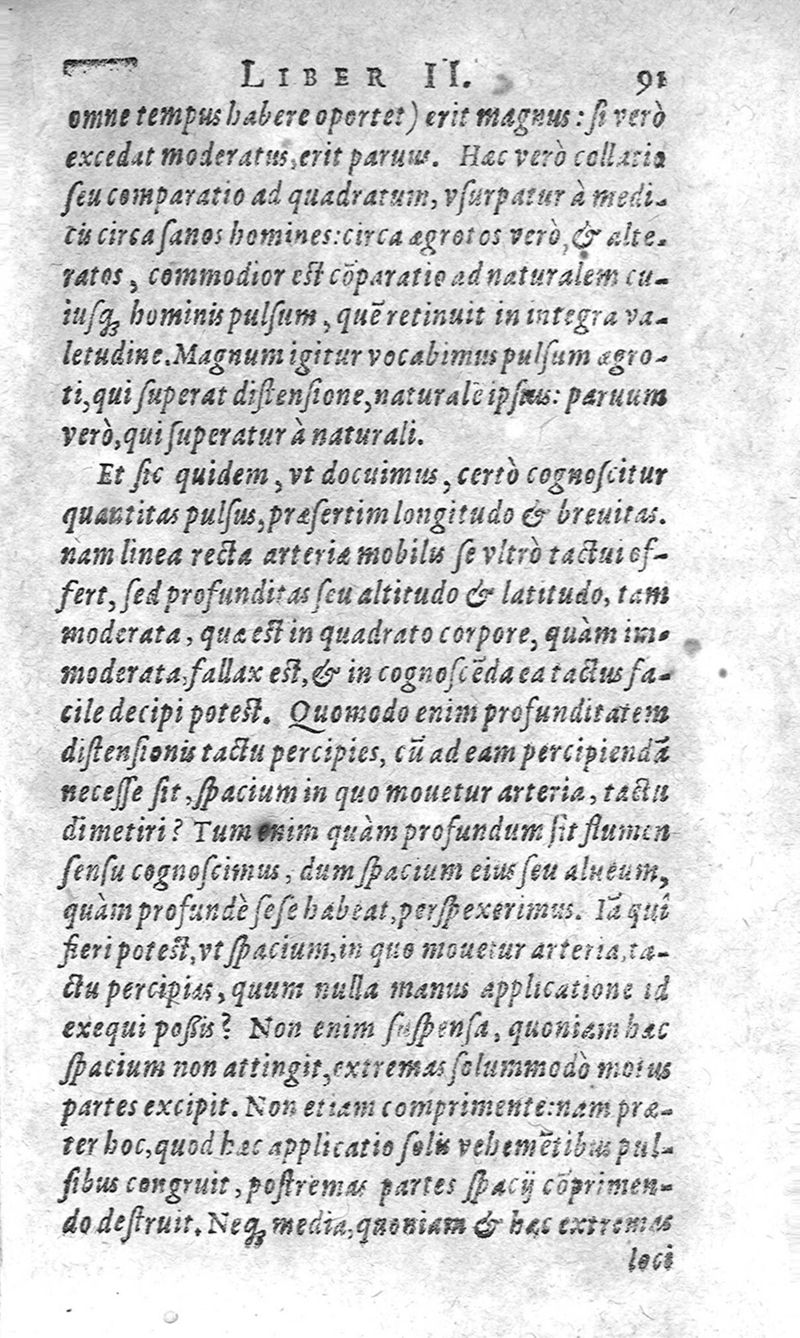 LIBER II. 91
omne tempus habere oportet) erit magnus: ſi verò
excedat moderatus, erit paruus. Hæc verò collatio
ſeu comparatio ad quadratum, vſurpatur à medi-
cis circa ſanos homines: circa ægrotos verò, & alte-
ratos, commodior eſt cōparatio ad naturalem cu-
iuſq; hominis pulſum, quē retinuit in integra va-
letudine. Magnum igitur vocabimus pulſum ægro-
ti, qui ſuperat diſtenſione, naturalē ipſius: paruum
verò, qui ſuperatur à naturali.
Et ſic quidem, vt docuimus, certò cognoſcitur
quantitas pulſus, præſertim longitudo & breuitas.
nàm linea recta arteriæ mobilis ſe vltrò tactui of-
fert, ſed profunditas ſeu altitudo & latitudo, tam
moderata, quæ eſt in quadrato corpore, quàm im-
moderata, fallax eſt, & in cognoſcēda ea tactus fa-
cile decipi poteſt. Quomodo enim profunditatem
diſtenſionis tactu percipies, cū ad eam percipiendā
neceſſe ſit, ſpacium in quo mouetur arteria, tactu
dimetiri? Tum enim quàm profundum ſit flumen
ſenſu cognoſcimus, dum ſpacium eius ſeu alueum,
quàm profundè ſeſe habeat, perſpexerimus. Iā qui
fieri poteſt, vt ſpacium, in quo mouetur arteria, ta-
ctu percipias, quum nulla manus applicatione id
exequi poſſis? Non enim ſuſpenſa, quoniam hæc
ſpacium non attingit, extremas ſolummodò motus
partes excipit. Non etiam comprimente: nam præ-
ter hoc, quod hæc applicatio ſolis vehemētibus pul-
ſibus congruit, poſtremas partes ſpacij cōprimen-
do deſtruit. Neq; media, quoniam & hæc extremas
loci